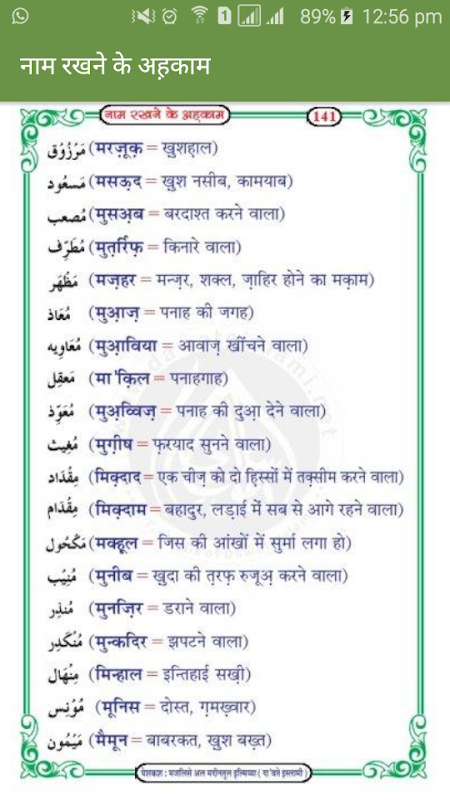 1 89% 12:56 pm
नाम रखने के अह़काम
नाम रखने के अह़काम 141
مَرْزُوْق (मरज़ूक़ = खुशह़ाल)
مَسعُود (मसऊ़द = खुश नसीब, कामयाब)
مُصعَب (मुसअ़ब = बरदाश्त करने वाला)
مُطَرِّف (मुत़र्रिफ़ = किनारे वाला)
مَظْهَر (मज़्हर = मन्ज़र, शक्ल, ज़ाहिर होने का मक़ाम)
مُعَاذ (मुआ़ज़ = पनाह की जगह)
مُعَاوِيه (मुआ़विया = आवाज़ खींचने वाला)
مَعقِل (मा'क़िल = पनाहगाह)
مُعَوِّذ (मुअ़व्विज़ = पनाह की दुआ़ देने वाला)
مُغِيث (मुग़ीष = फ़रयाद सुनने वाला)
مِقْدَاد (मिक़्दाद = एक चीज़ को दो ह़िस्सों में तक़्सीम करने वाला)
مِقْدَام (मिक़्दाम = बहादुर, लड़ाई में सब से आगे रहने वाला)
مَكْحُول (मक्हूल = जिस की आंखों में सुर्मा लगा हो)
مُنِيْب (मुनीब = ख़ुदा की त़रफ़ रुजूअ़ करने वाला)
مُنذِر (मुनज़िर = डराने वाला)
مُنْكَدِر (मुन्कदिर = झपटने वाला)
مِنْهَال (मिन्हाल = इन्तिहाई सख़ी)
مُوْنِس (मूनिस = दोस्त, ग़मख़्वार)
مَيْمُون (मैमून = बाबरकत, खुश बख़्त)
पेशकश : मजलिसे अल मदीनतुल इ़ल्मिय्या ( दा'वते इस्लामी )